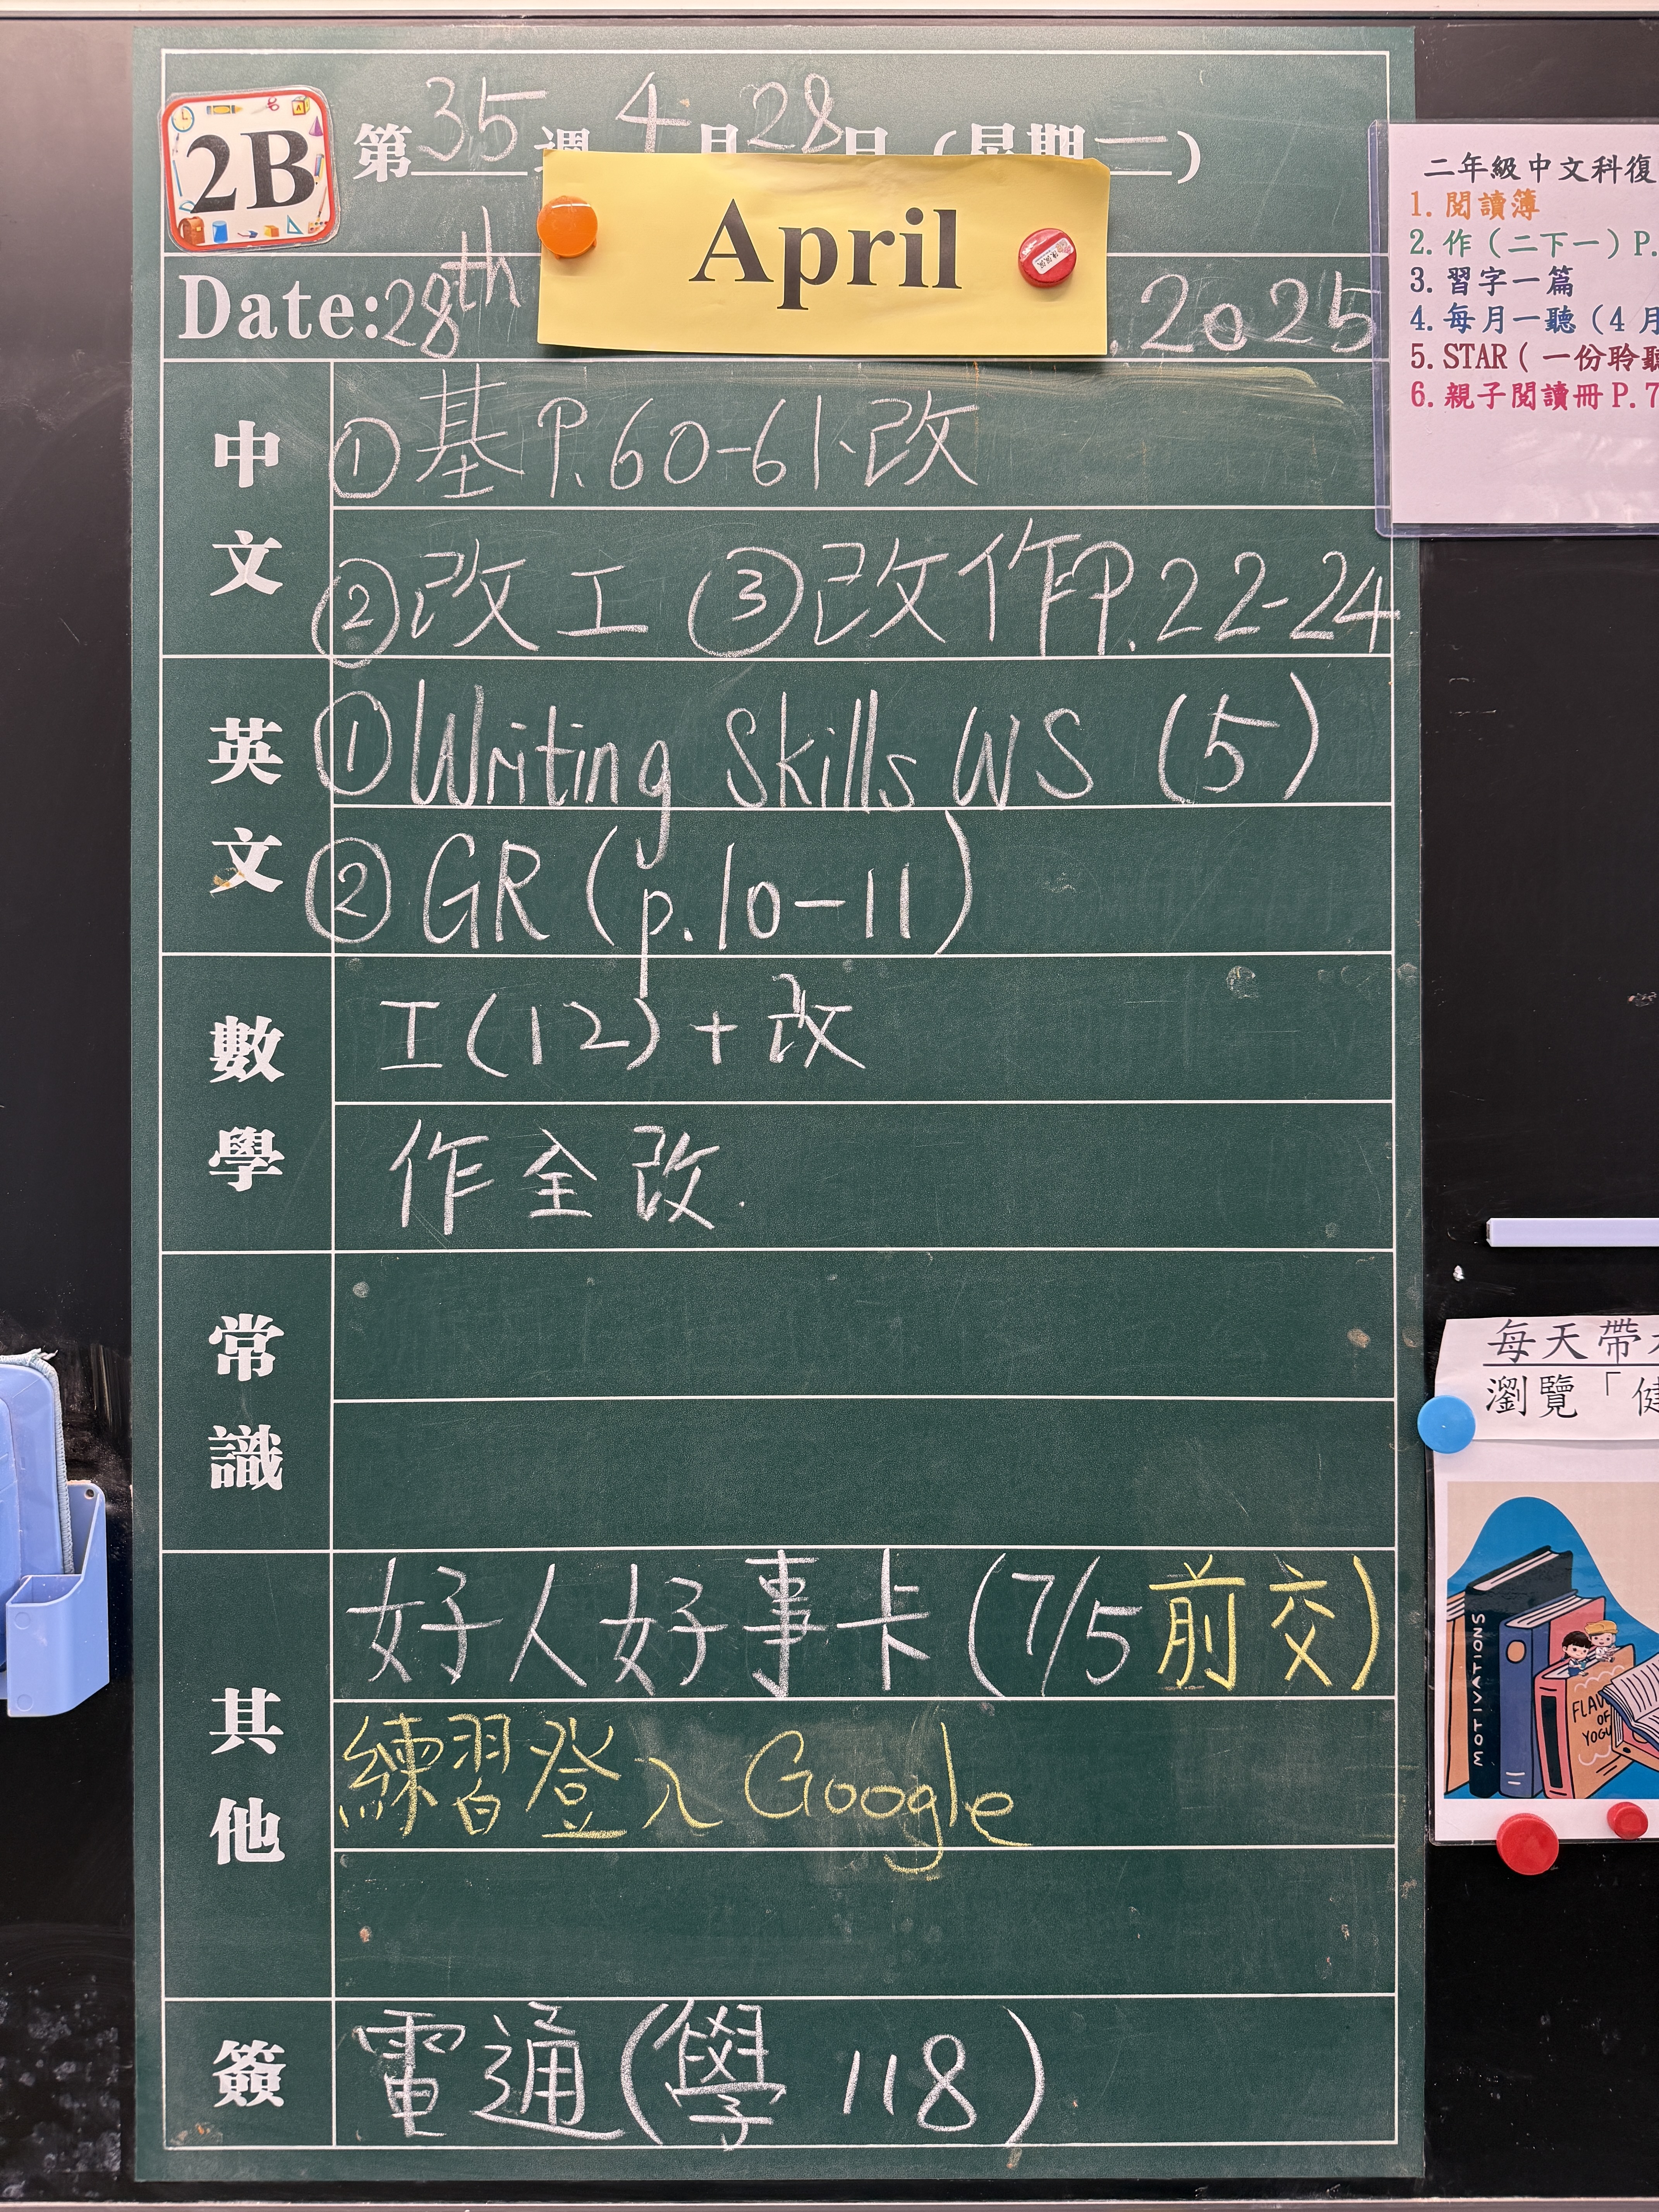 2B
第35週 4月28日(星期一)
Date: 28th April, 2025
中文
①基P.60-61、改
②改工 ③改作P.22-24
英文
①Writing Skills WS (5)
②GR (p.10-11)
數學
工(12)+改
作全改.
常識
其他
好人好事卡(7/5前交)
練習登入Google
簽
電通(學118)
二年級中文科復
1. 閱讀簿
2. 作(二下一)P.
3. 習字一篇
4. 每月一聽(4月
5. STAR(一份聆聽
6. 親子閱讀冊P.7
每天帶
瀏覽「健
MOTIVATIONS
FLAV
OF
YOGU